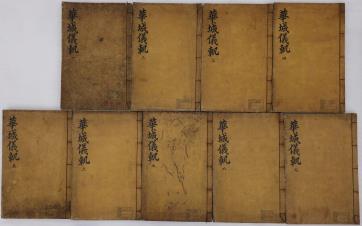 華城儀軌
華城儀軌 二
華城儀軌 三
華城儀軌 四
華城儀軌 五
華城儀軌
華城儀軌
華城儀軌 八
華城儀軌 九